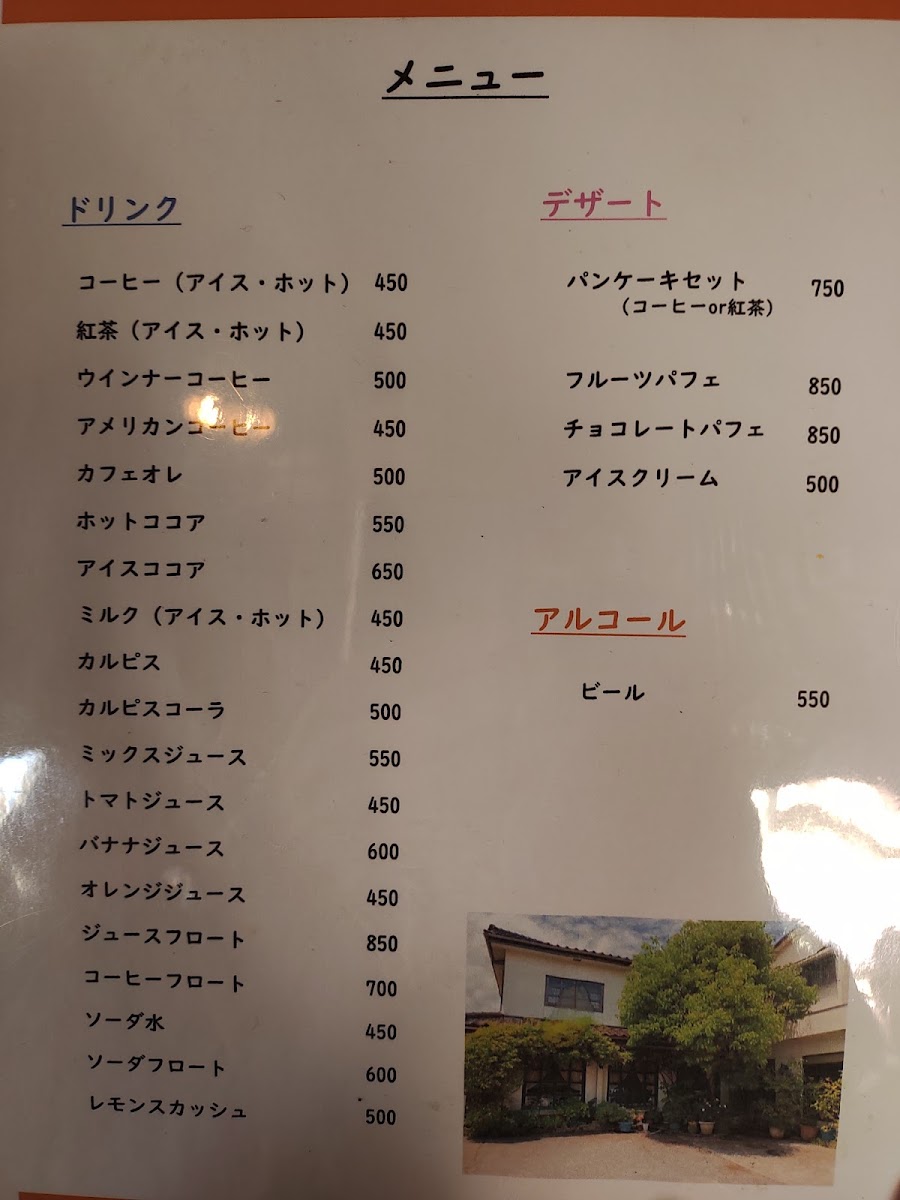 メニュー
ドリンク
コーヒー（アイス・ホット） 450
紅茶（アイス・ホット） 450
ウインナーコーヒー 500
アメリカンコーヒー 450
カフェオレ 500
ホットココア 550
アイスココア 650
ミルク（アイス・ホット） 450
カルピス 450
カルピスコーラ 500
ミックスジュース 550
トマトジュース 450
バナナジュース 600
オレンジジュース 450
ジュースフロート 850
コーヒーフロート 700
ソーダ水 450
ソーダフロート 600
レモンスカッシュ 500
デザート
パンケーキセット 750
（コーヒーor紅茶）
フルーツパフェ 850
チョコレートパフェ 850
アイスクリーム 500
アルコール
ビール 550